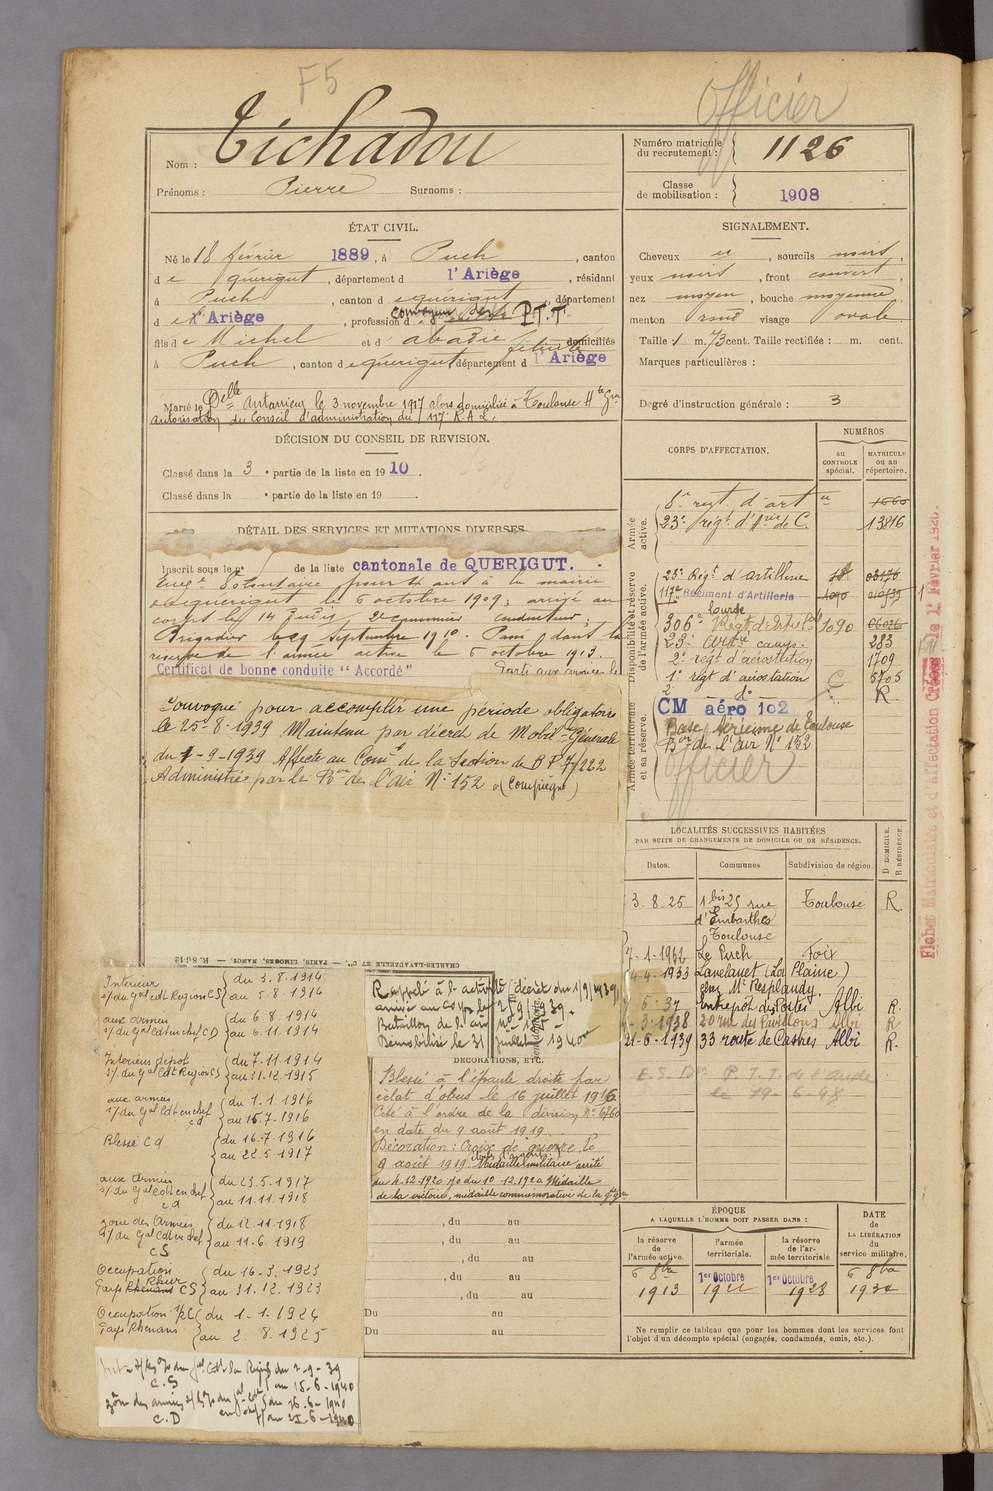 F5
Officier
Nom : Tichadou
Prénoms : Pierre Surnoms :
Numéro matricule du recrutement : 1126
Classe de mobilisation : 1908
ÉTAT CIVIL.
Né le 18 février 1889, à Puch, canton
de quérigut, département d l'Ariège, résidant
à Puch, canton de quérigut, département
d e l'Ariège, profession d convoyeur des P.T.T.
fils de Michel et d' abadie félicité domiciliés
à Puch, canton de quérigut, département d l'Ariège
Marié le Delle Antarrieu le 3 novembre 1917 alors domiciliée à Toulouse Hte Gne
autorisation du Conseil d'administration du 117e R.A.L.
SIGNALEMENT.
Cheveux , sourcils noirs,
yeux noirs, front couvert,
nez moyen, bouche moyenne,
menton rond visage ovale.
Taille 1 m. 73 cent. Taille rectifiée : m. cent.
Marques particulières :
Degré d'instruction générale : 3
DÉCISION DU CONSEIL DE REVISION.
Classé dans la 3e partie de la liste en 1910.
Classé dans la e partie de la liste en 19 .
DÉTAIL DES SERVICES ET MUTATIONS DIVERSES
Inscrit sous le n° de la liste cantonale de QUERIGUT.
Engé Volontaire pour 4 ans à la mairie
de quérigut le 6 octobre 1909; arrivé au
corps le 2e canonnier conducteur;
Brigadier le 29 septembre 1910. Passé dans la
réserve de l'armée active le 6 octobre 1913.
Certificat de bonne conduite "Accordé"
Parti aux armées le
Convoqué pour accomplir une période obligatoire
le 25-8-1939 Maintenu par décret de Mobil Générale
du 1-9-1939 Affecté au Comt de la Section de B P 7/222
Administrée par le Bon de l'Air N° 152 (Compiègne)
CORPS D'AFFECTATION.
NUMÉROS
au CONTROLE spécial.
MATRICULE ou au répertoire.
Armée active.
8e régt d'art 1660
23e régt d'Arie de C. 13816
Disponibilité et réserve de l'armée active.
23e Régt d'artillerie
117e Régiment d'Artillerie lourde 1090
306e Régt d'Inf 1090
23e Artie camp. 283
2e régt d'aérostation 1709
1e régt d'aérostation 5705
2e do R.
Armée territoriale et sa réserve.
CM aéro 102
Base Aérienne de Toulouse
Bon de l'Air N° 152
Officier
Fiches Matriculaire et d'Affectation Créées le 1er Février 1926.
LOCALITÉS SUCCESSIVES HABITÉES
PAR SUITE DE CHANGEMENTS DE DOMICILE OU DE RÉSIDENCE.
Dates. Communes Subdivision de région. D DOMICILE. R RÉSIDENCE.
3-8-25 1 bis 25 rue d'Embarthes Toulouse Toulouse R.
7-1-1932 Le Puch Foix
4-4-1933 Lavelanet (La Plaine)
chez Mr Resplandy.
5-37 Entrepôt des Postes Albi R.
3-1938 20 rue des Pavillons Albi R
21-6-1939 33 route de Castres Albi R.
E.S. Dn P.T.T. de l'Aude
le 19-6-48
CHARLES-LAVAUZELLE ET Cie. — PARIS, LIMOGES, NANCY. — R. 86-12
Intérieur du 3.8.1914
s/du Gal cdt Région CS au 5.8.1914
aux armées du 6.8.1914
s/du Gal Cdt en chef CD au 6.11.1914
Intérieur dépôt du 7.11.1914
s/ du Gal Cdt Région CS au 31.12.1915
aux armées du 1.1.1916
s/du Gal Cdt en chef cd au 15.7.1916
Blessé Cd du 16.7.1916
au 22.5.1917
aux armées du 23.5.1917
s/ du Gal Cdt en chef cd au 11.11.1918
zone des Armées du 12.11.1918
s/ du Gal Cdt en chef CS au 11.6.1919
Occupation du 16-3.1923
Pays Rhénans Ruhr CS au 31.12.1923
Occupation du 1-1-1924
Pays Rhénans au 2.8.1925
du 2-9-39
C.S au 15-6-1940
zône des armées du 16-6-1940
C.D au 25-6-1940
Rappelé à l'activité (décret du 1/9/1939)
arrivé au corps le 2/9/39.
Bataillon de l'air n° 152
Démobilisé le 31 juillet 1940
DÉCORATIONS, ETC.
Blessé à l'épaule droite par
éclat d'obus le 16 juillet 1916
Cité à l'ordre de la division, N° 6760
en date du 9 août 1919.
Décoration : Croix de guerre le
9 août 1919. Médaille militaire arrêté
du 4-12-1920 Jo du 10-12-1920 Médaille
de la victoire, médaille commémorative de la gde gre
, du au
, du au
, du au
, du au
, du au
Du au
Du au
ÉPOQUE
A LAQUELLE L'HOMME DOIT PASSER DANS :
la réserve de l'armée active.
l'armée territoriale.
la réserve de l'armée territoriale
DATE de LA LIBÉRATION du service militaire.
6 8bre 1913
1er Octobre
1er Octobre 1928
6 8bre
Ne remplir ce tableau que pour les hommes dont les services font
l'objet d'un décompte spécial (engagés, condamnés, omis, etc.).